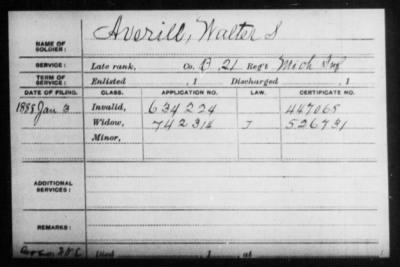 NAME OF SOLDIER: Averill, Walter S
SERVICE: Late rank, Co. B 21 Reg't Mich Inf
TERM OF SERVICE: Enlisted , 1 Discharged , 1
DATE OF FILING. CLASS. APPLICATION NO. LAW. CERTIFICATE NO.
1888 Jan 3 Invalid, 634224 447065
Widow, 742316 526731
Minor,
ADDITIONAL SERVICES:
REMARKS:
, 1 , at